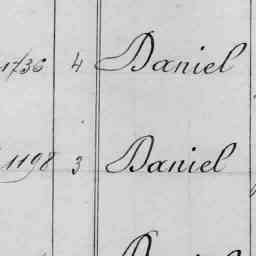 1736 4 Daniel
1198 3 Daniel